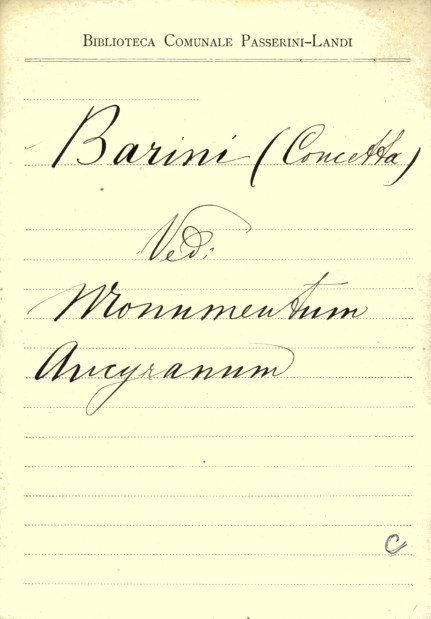 Biblioteca Comunale Passerini-Landi
Barini (Concetta)
Vedi:
Monumentum
Ancyranum
C